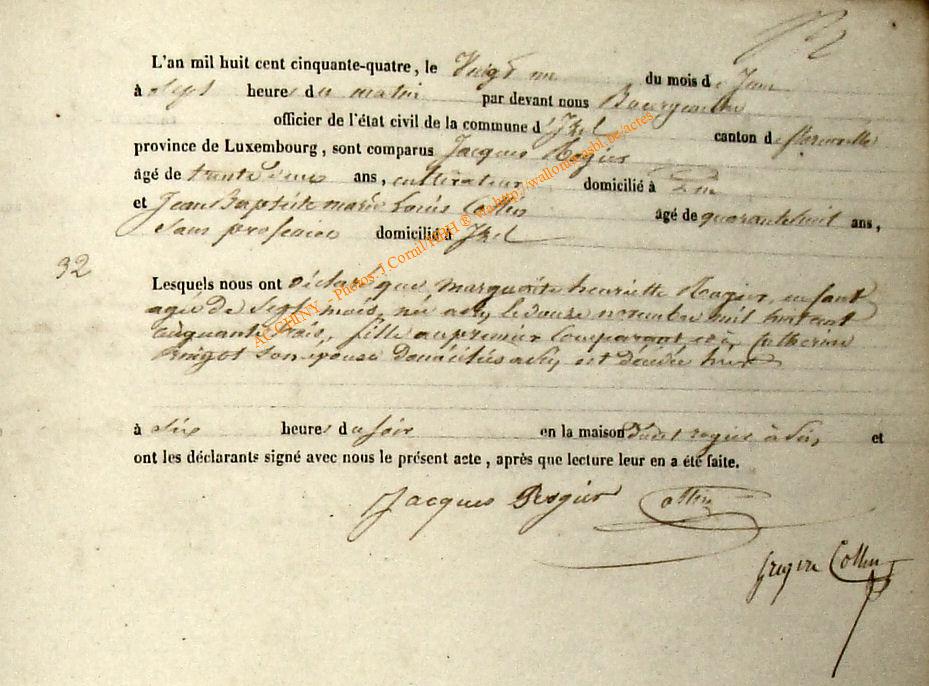 L'an mil huit cent cinquante-quatre, le Vingt un du mois de Juin
à Sept heures du matin par devant nous Bourgmestre
officier de l'état civil de la commune d'Izel canton de florenville
province de Luxembourg, sont comparus Jacques Rogier
âgé de trente ans, cultivateur domicilié à
et Jean Baptiste marie Louis Collin âgé de quarante huit ans,
Sans profession domicilié à Izel
32
Lesquels nous ont déclaré que marguerite henriette Rogier, enfant
agée de Sept mois, née le douze novembre mil huit cent
cinquante trois, fille au premier Comparant et à Catherine
Son épouse domiciliés est décédée hier
à Six heures du soir en la maison dudit rogier à et
ont les déclarants signé avec nous le présent acte, après que lecture leur en a été faite.
Jacques Rogier Collin
Collin
AC CHINY - Photos: J.Cornil/ via http://wallonia.asbl.be/actes